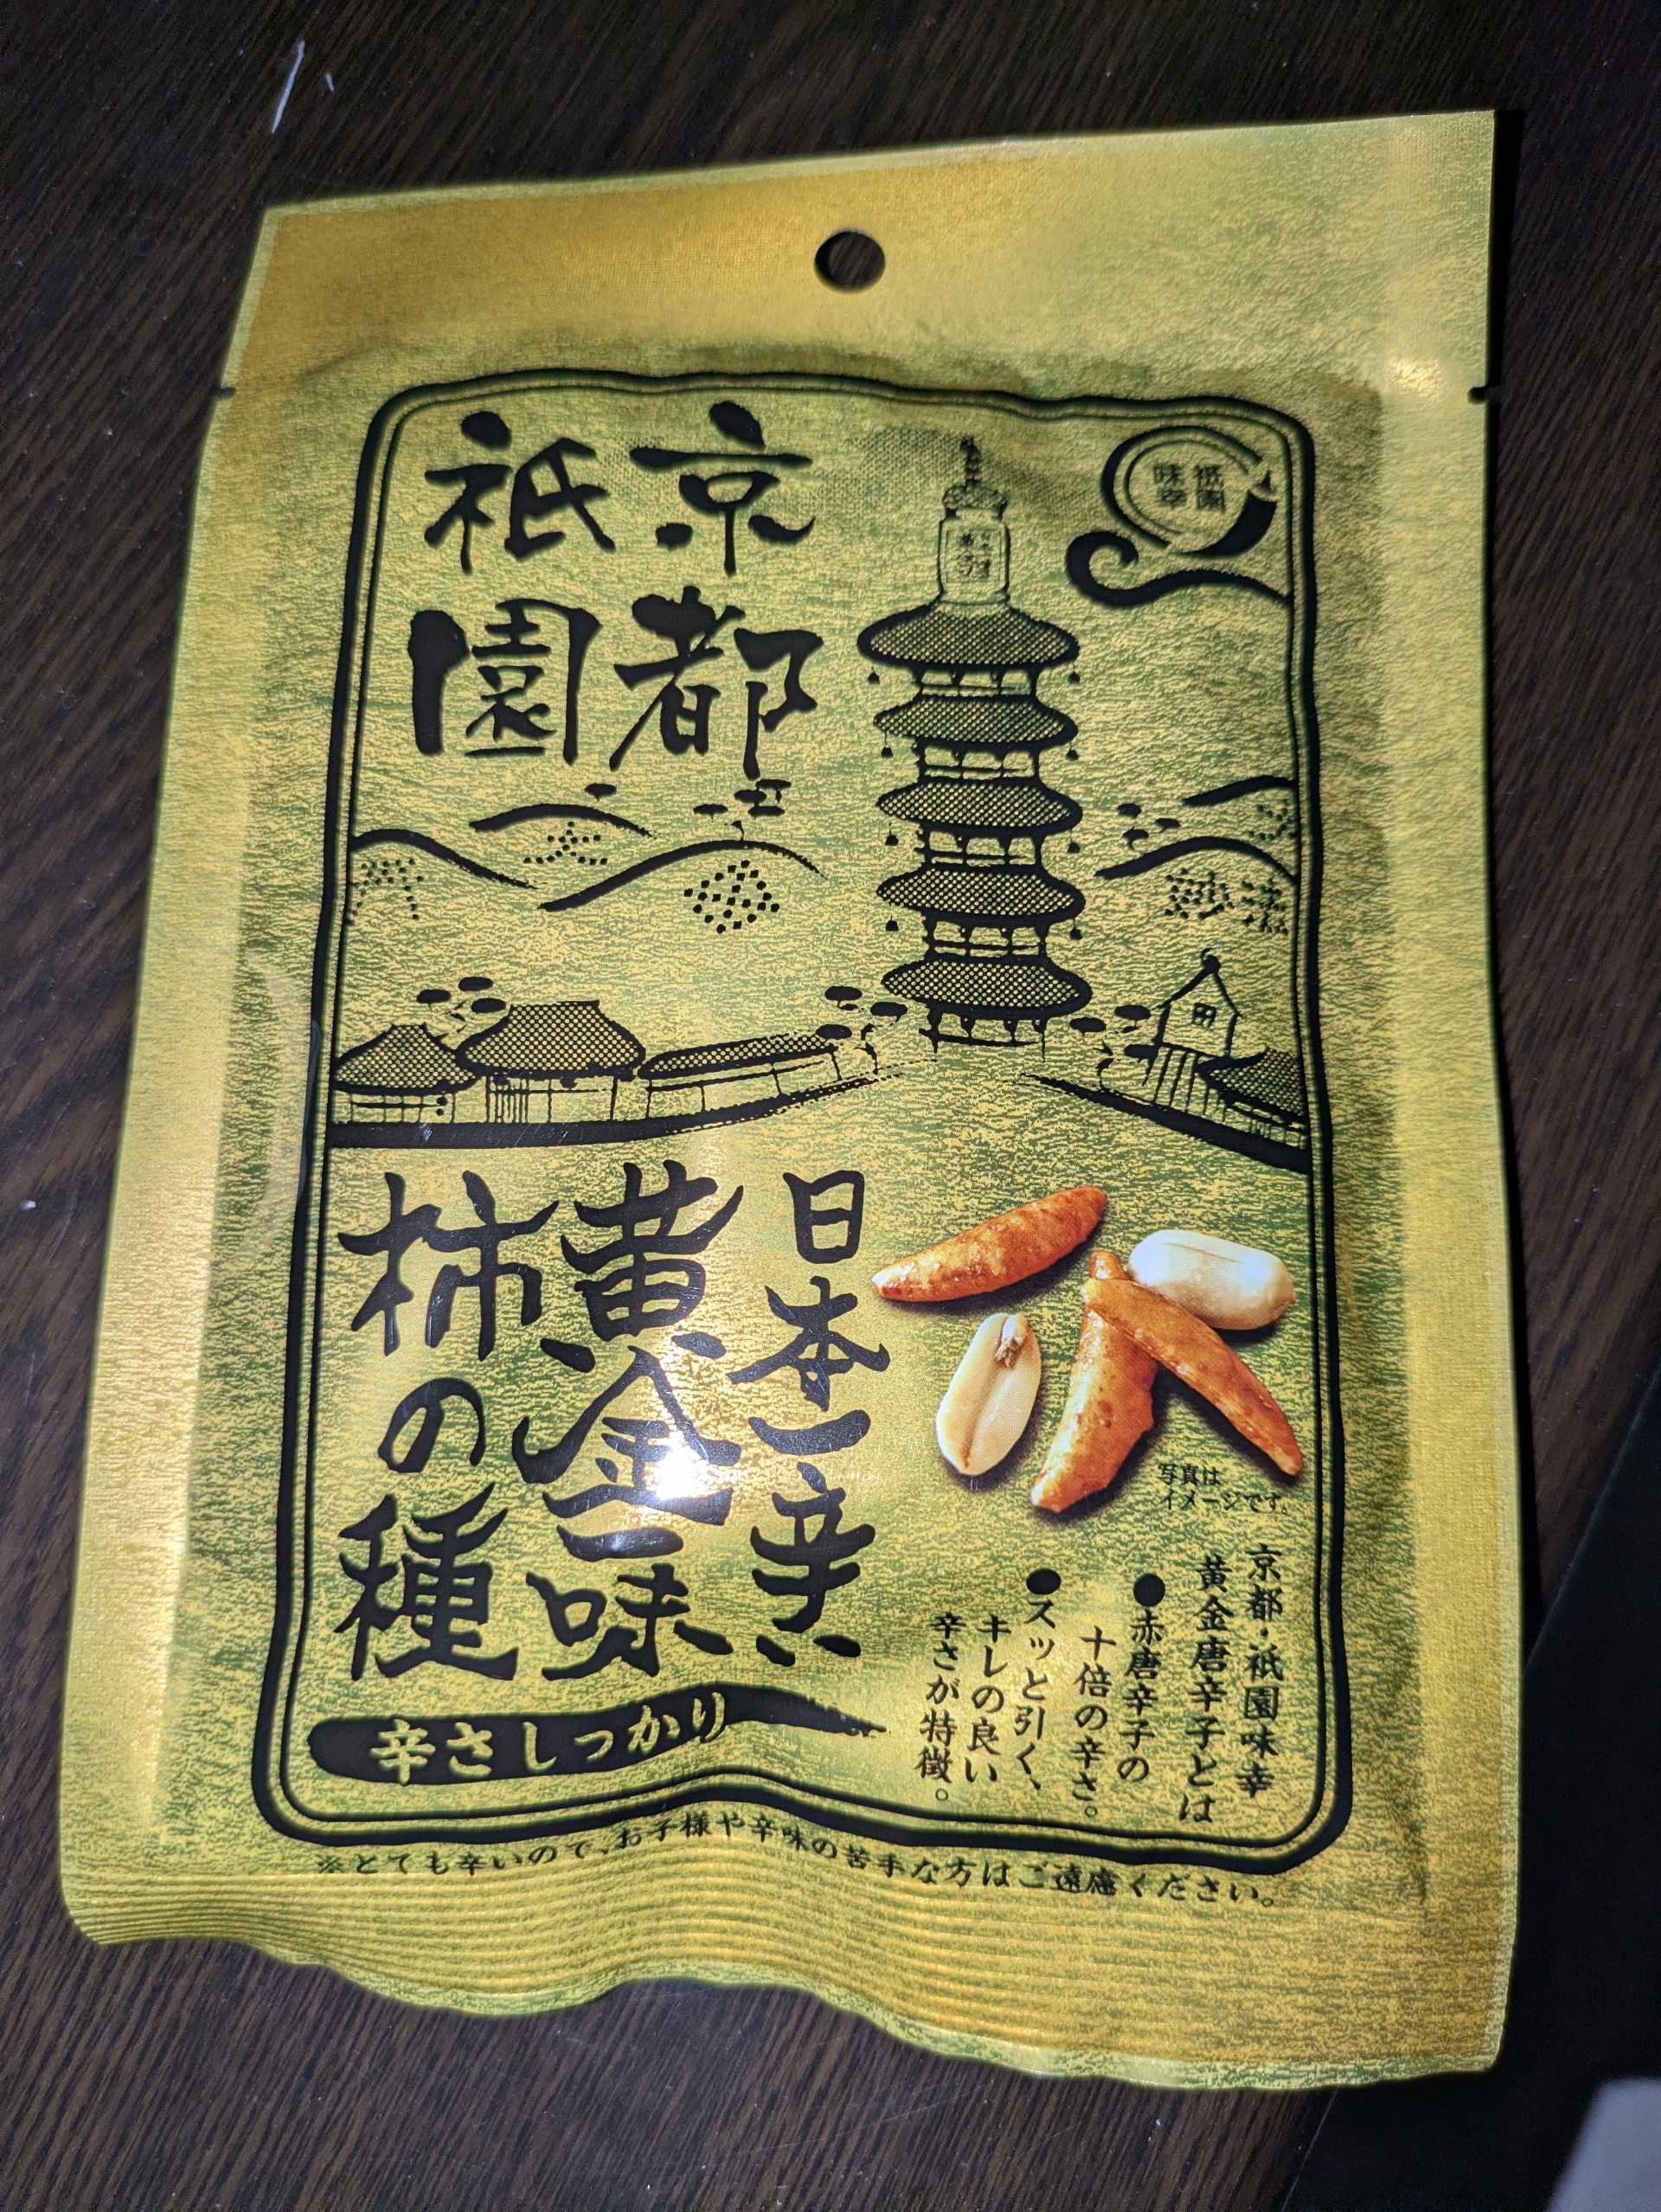 京都
祇園
祇園
味幸
大
妙法
日本一辛い
黄金一味
柿の種
辛さしっかり
写真は
イメージです。
京都・祇園味幸
黄金唐辛子とは
●赤唐辛子の
十倍の辛さ。
●スッと引く、
キレの良い
辛さが特徴。
※とても辛いので、お子様や辛味の苦手な方はご遠慮ください。